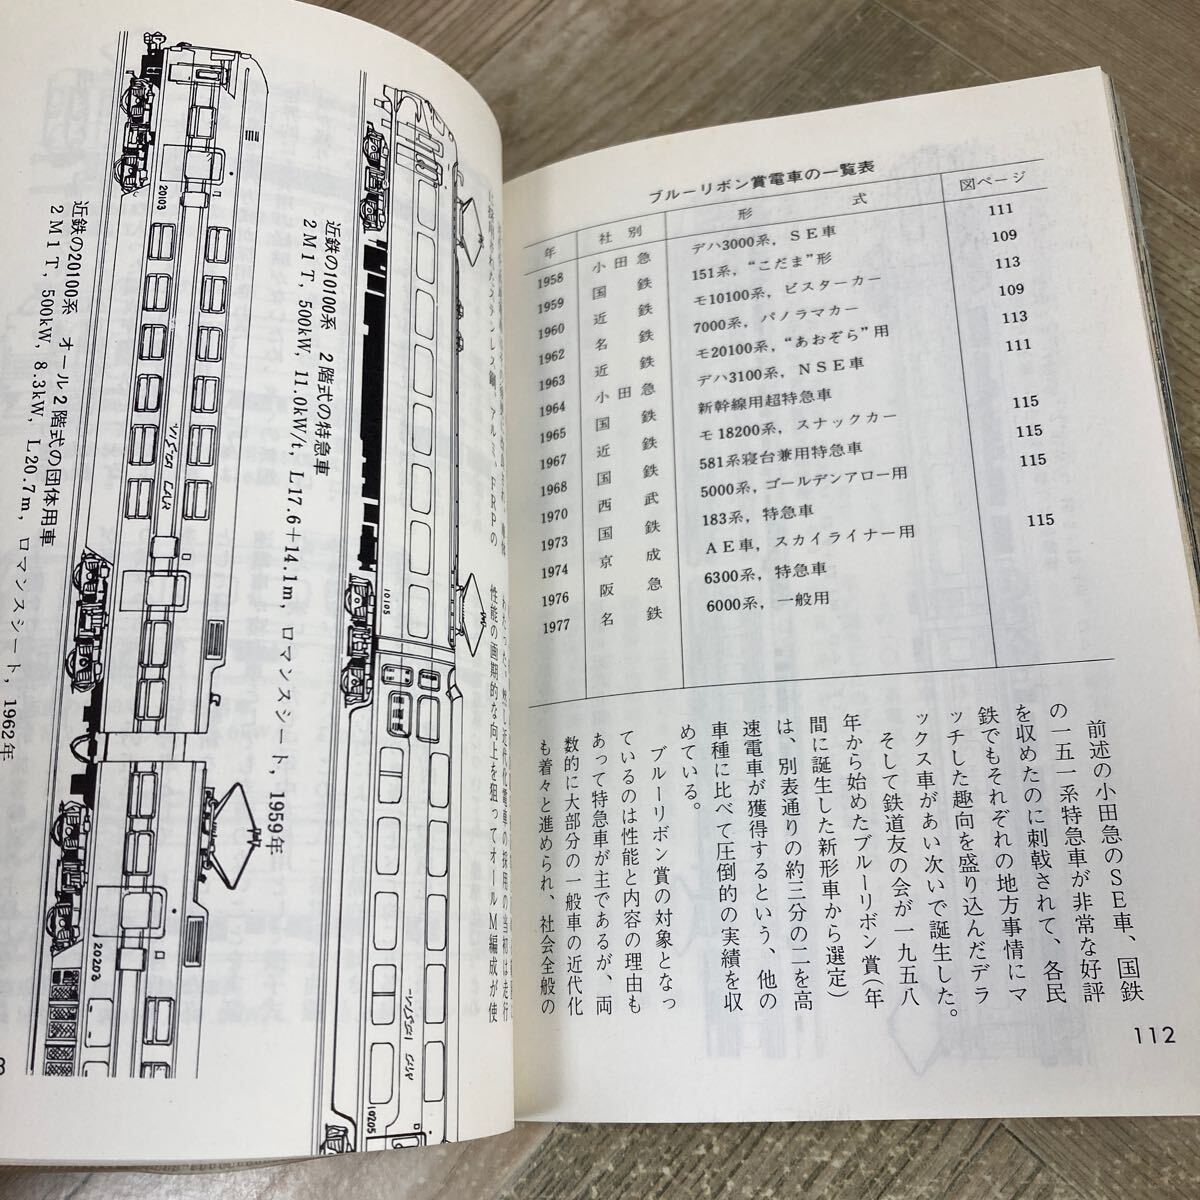 ブルーリボン賞電車の一覧表
年 社別 形式 図ページ
1958 小田急 デハ3000系，SE車 111
1959 国鉄 151系，“こだま”形 109
1960 近鉄 モ10100系，ビスターカー 113
1962 名鉄 7000系，パノラマカー 109
1963 近鉄 モ20100系，“あおぞら”用 113
1964 小田急 デハ3100系，NSE車 111
1965 国鉄 新幹線用超特急車
1967 近鉄 モ18200系，スナックカー 115
1968 国鉄 581系寝台兼用特急車 115
1970 西武 5000系，ゴールデンアロー用 115
1973 国鉄 183系，特急車
1974 京成 AE車，スカイライナー用 115
1976 阪急 6300系，特急車
1977 名鉄 6000系，一般用
前述の小田急のSE車、国鉄
の一五一系特急車が非常な好評
を収めたのに刺戟されて、各民
鉄でもそれぞれの地方事情にマ
ッチした趣向を盛り込んだデラ
ックス車があい次いで誕生した。
そして鉄道友の会が一九五八
年から始めたブルーリボン賞（年
間に誕生した新形車から選定）
は、別表通りの約三分の二を高
速電車が獲得するという、他の
車種に比べて圧倒的の実績を収
めている。
ブルーリボン賞の対象となっ
ているのは性能と内容の理由も
あって特急車が主であるが、両
数的に大部分の一般車の近代化
も着々と進められ、社会全般の
112
性能の画期的な向上を狙ってオールM編成が使
ステンレス鋼、アルミ、FRPの
近鉄の10100系 2階式の特急車
2M1T，500kW，11.0kW/t，L17.6＋14.1m，ロマンスシート，1959年
10105
10205
近鉄の20100系 オール2階式の団体用車
2M1T，500kW，8.3kW，L20.7m，ロマンスシート，1962年
20103
20203